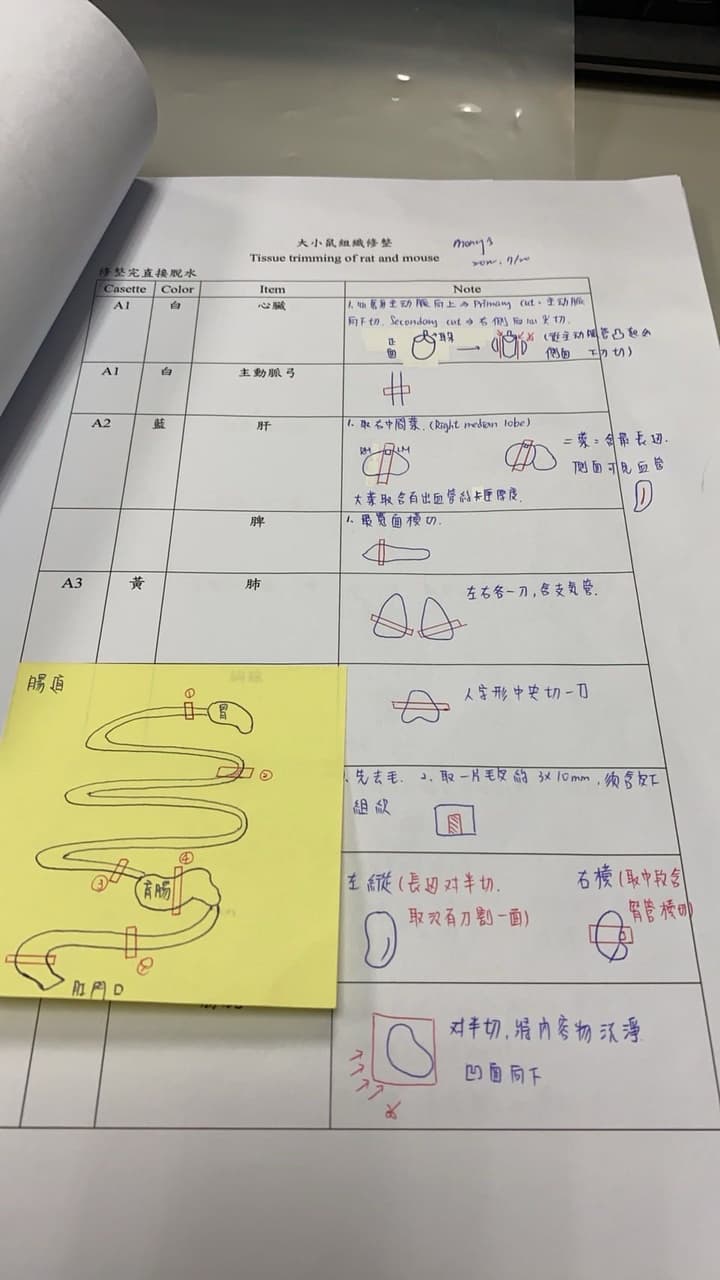 大小鼠組織修整
Tissue trimming of rat and mouse
修整完直接脫水
Casette Color Item Note
A1 白 心臟
1. 主動脈向上 ⇒ Primary cut. 主動脈
向下切. Secondary cut ⇒ 右側
正面
側面 下刀切)
A1 白 主動脈弓
A2 藍 肝
1. 取右中間葉. (Right median lobe)
RM LM
二葉=含最長边.
側面可見血管
大葉取含有出血管的厚度.
脾
1. 最寬面橫切.
A3 黃 肺
左右各一刀,含支氣管.
人字形中央切一刀
1. 先去毛. 2. 取一片毛皮約 3x10mm, 須含皮下
組織
左縱(長边对半切.
取沒有刀割一面)
右橫(取中段含
腎管橫切)
对半切,將內容物沉淨
凹面向下
腸道
①
胃
②
③
④
盲腸
⑤
肛門口